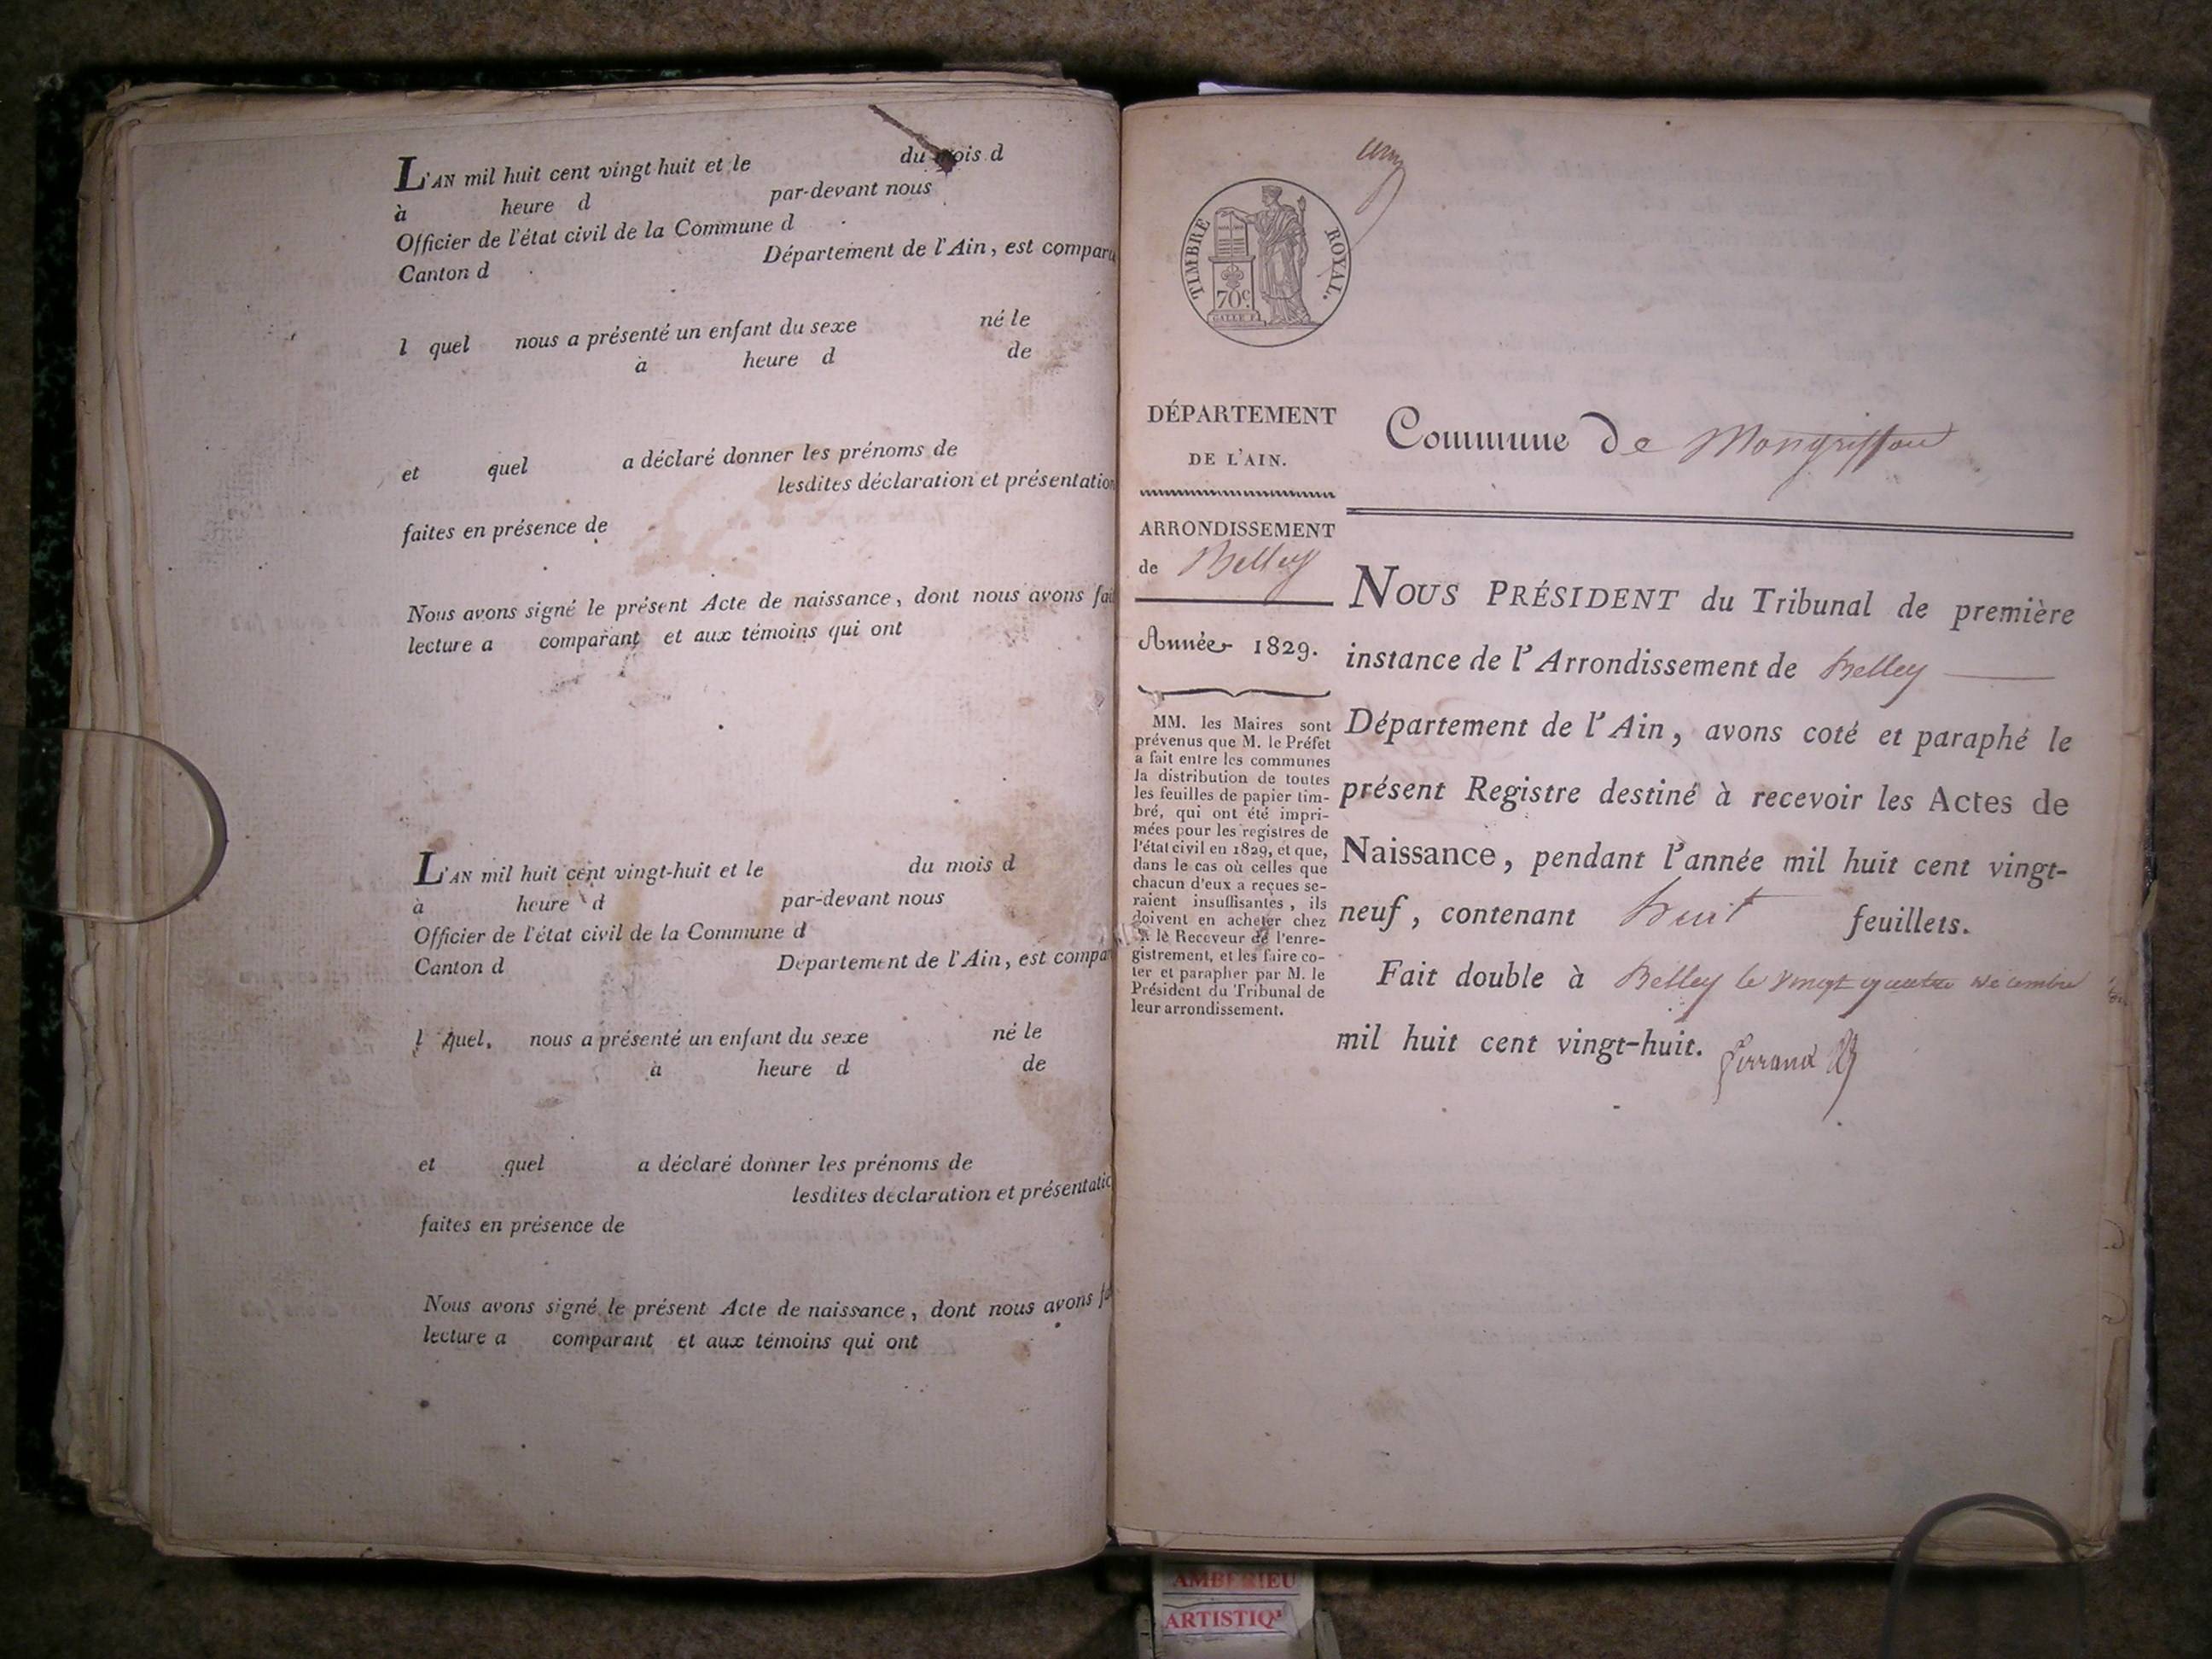 L'AN mil huit cent vingt-huit et le du mois d
à heure d par-devant nous
Officier de l'état civil de la Commune d
Canton d Département de l'Ain, est comparu
l quel nous a présenté un enfant du sexe né le
à heure d de
et quel a déclaré donner les prénoms de
lesdites déclaration et présentation
faites en présence de
Nous avons signé le présent Acte de naissance, dont nous avons fai
lecture a comparant et aux témoins qui ont
L'AN mil huit cent vingt-huit et le du mois d
à heure d par-devant nous
Officier de l'état civil de la Commune d
Canton d Département de l'Ain, est compar
l quel, nous a présenté un enfant du sexe né le
à heure d de
et quel a déclaré donner les prénoms de
lesdites déclaration et présentatio
faites en présence de
Nous avons signé le présent Acte de naissance, dont nous avons fa
lecture a comparant et aux témoins qui ont
TIMBRE ROYAL.
70c.
DÉPARTEMENT
DE L'AIN.
ARRONDISSEMENT
de Belley
Année 1829.
MM. les Maires sont
prévenus que M. le Préfet
a fait entre les communes
la distribution de toutes
les feuilles de papier tim-
bré, qui ont été impri-
mées pour les registres de
l'état civil en 1829, et que,
dans le cas où celles que
chacun d'eux a reçues se-
raient insuffisantes, ils
doivent en acheter chez
le Receveur de l'enre-
gistrement, et les faire co-
ter et parapher par M. le
Président du Tribunal de
leur arrondissement.
Commune de Mongriffon
NOUS PRÉSIDENT du Tribunal de première
instance de l'Arrondissement de Belley
Département de l'Ain, avons coté et paraphé le
présent Registre destiné à recevoir les Actes de
Naissance, pendant l'année mil huit cent vingt-
neuf, contenant huit feuillets.
Fait double à Belley le vingt quatre décembre
mil huit cent vingt-huit.
AMBERIEU
ARTISTIQ